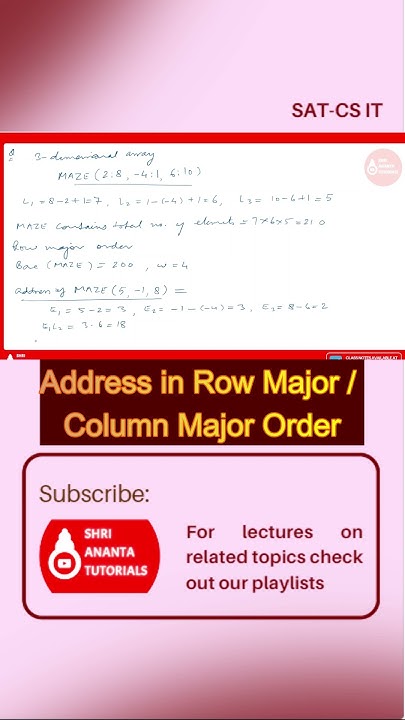 SAT-CS IT
Q 3-dimensional array
MAZE (2:8, -4:1, 6:10)
L₁ = 8-2+1=7, L₂ = 1-(-4)+1=6, L₃= 10-6+1=5
MAZE contains total no. of elements = 7x6x5=210
Row major order
Base (MAZE) = 200, w=4
Address of MAZE (5, -1, 8) =
E₁ = 5-2=3, E₂= -1-(-4)=3, E₃=8-6=2
E₁L₂ = 3·6=18
SHRI ANANTA TUTORIALS
SHRI
CLASS NOTES AVAILABLE AT
Address in Row Major /
Column Major Order
Subscribe:
SHRI
ANANTA
TUTORIALS
For lectures on
related topics check
out our playlists